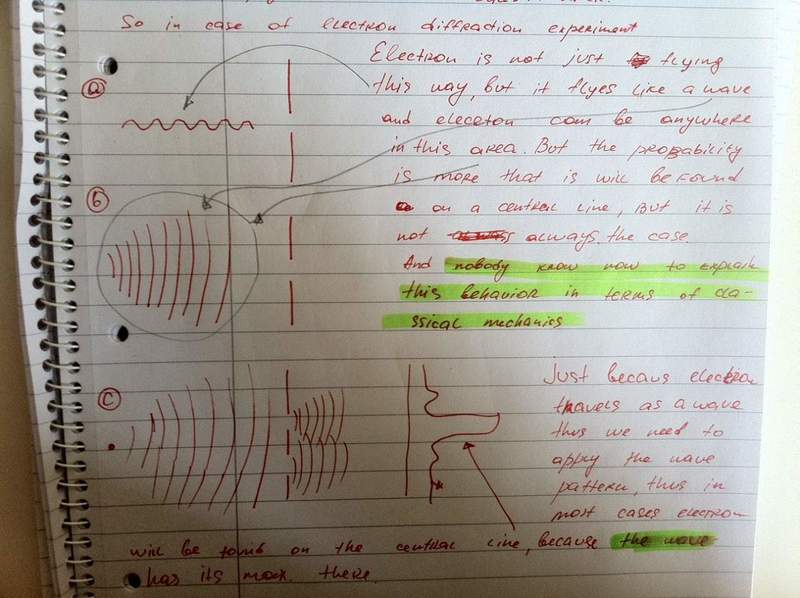 So in case of electron diffraction experiment
a
Electron is not just flying
this way, but it flyes like a wave
and eleceton can be anywhere
in this area. But the probability
is more that is will be found
on a central line, But it is
not always the case.
And nobody know how to explain
this behavior in terms of cla-
ssical mechanics
б
c
Just becaus electron
travels as a wave
thus we need to
apply the wave
pattern, thus in
most cases electron
will be found on the central line, because the wave
has its max. there.